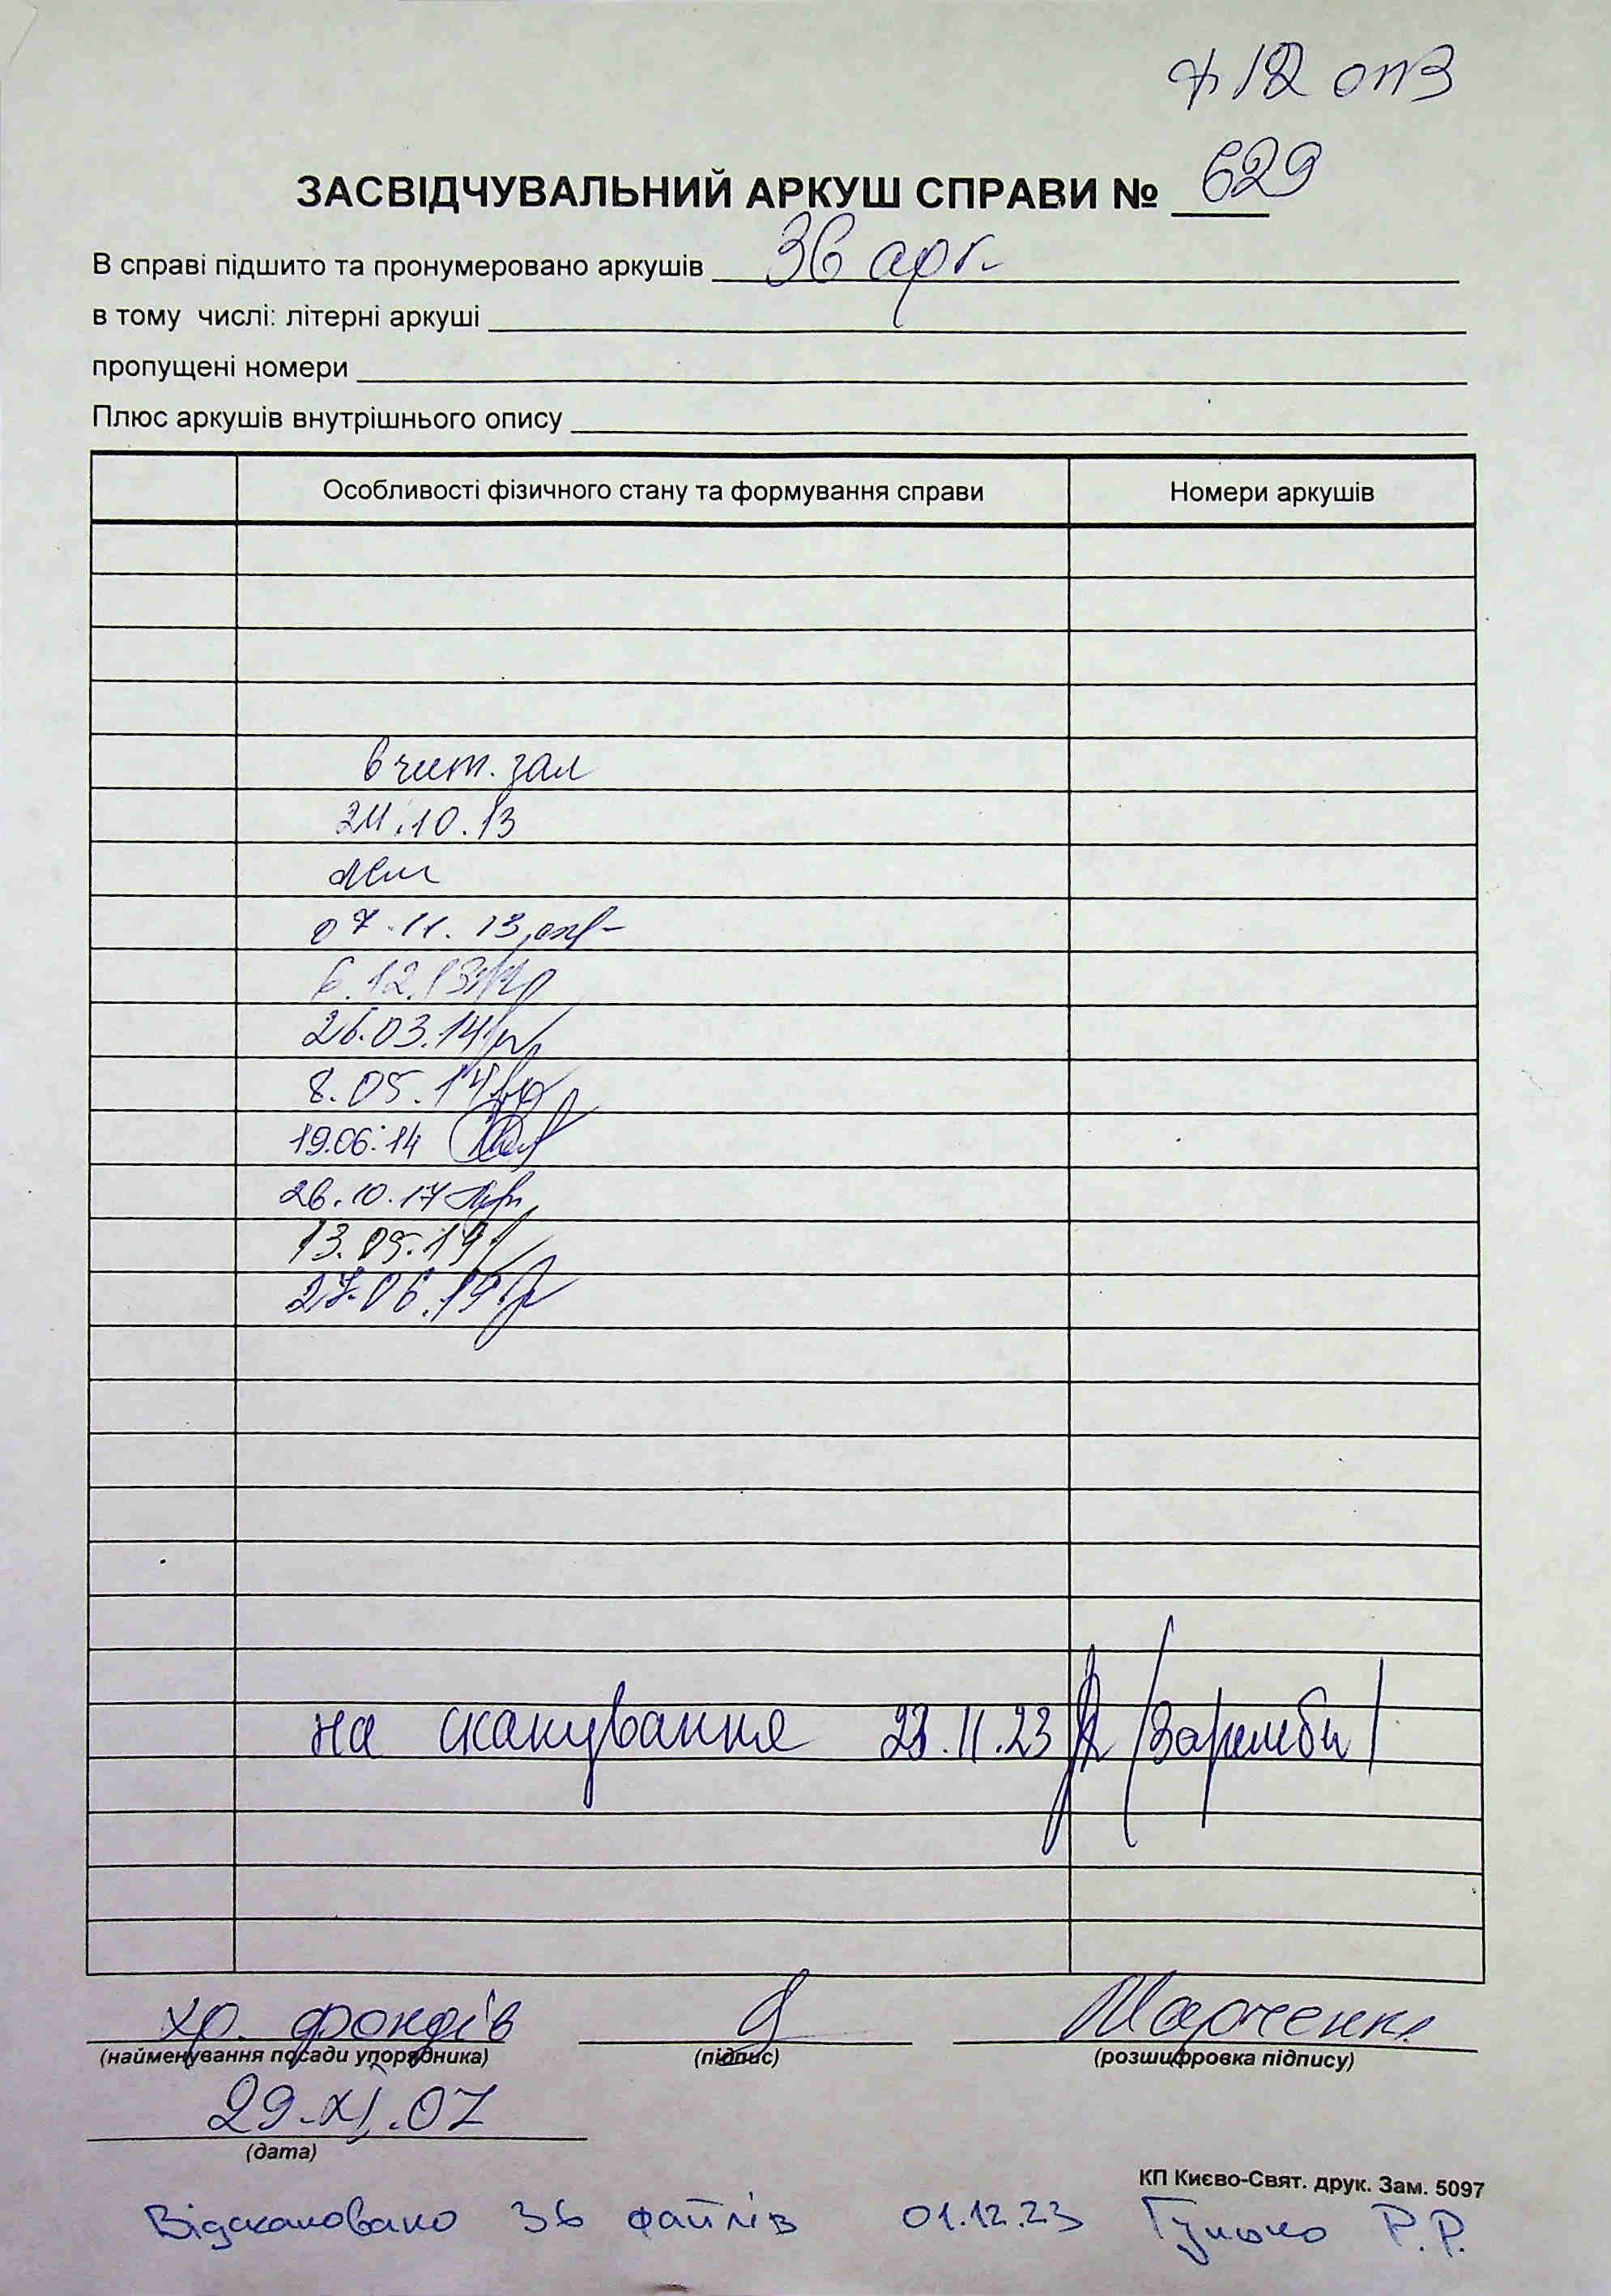 ф 12 оп 3
ЗАСВІДЧУВАЛЬНИЙ АРКУШ СПРАВИ № 629
В справі підшито та пронумеровано аркушів 36 арк.
в тому числі: літерні аркуші
пропущені номери
Плюс аркушів внутрішнього опису
Особливості фізичного стану та формування справи Номери аркушів
в чит. зал
24.10.13
07.11.13
6.12.13
26.03.14
8.05.14
19.06.14
26.10.17
13.05.19
27.06.19
на сканування 23.11.23
хр. фондів Марченко
(найменування посади упорядника) (підпис) (розшифровка підпису)
29.XI.07
(дата)
КП Києво-Свят. друк. Зам. 5097
Відскановано 36 файлів 01.12.23 Р.Р.